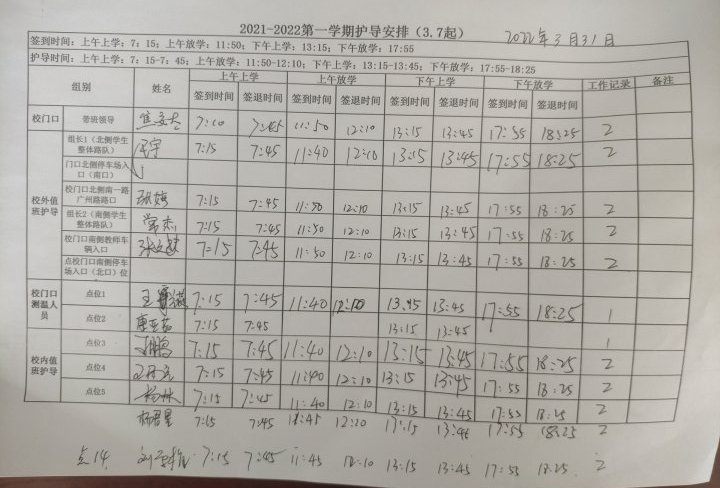 2021-2022第一学期护导安排（3.7起） 2022年3月31日
签到时间：上午上学：7：15；上午放学：11:50；下午上学：13:15；下午放学：17:55
护导时间：上午上学：7：15-7：45；上午放学：11:50-12:10；下午上学：13:15-13:45；下午放学：17:55-18:25
组别 姓名 上午上学 上午放学 下午上学 下午放学 工作记录 备注
签到时间 签退时间 签到时间 签退时间 签到时间 签退时间 签到时间 签退时间
校门口 带班领导 7:10 7:45 11:50 12:10 13:15 13:45 17:55 18:25 2
校外值班护导 组长1（北侧学生整体路队） 7:15 7:45 11:40 12:10 13:15 13:45 17:55 18:25 2
门口北侧停车场入口（南口）
校门口北侧南一路广州路路口 7:15 7:45 11:50 12:10 13:15 13:45 17:55 18:25 2
组长2（南侧学生整体路队） 常杰 7:15 7:45 11:50 12:10 13:15 13:45 17:55 18:25 2
校门口南侧教师车辆入口 7:15 7:45 11:50 12:10 13:15 13:45 17:55 18:25 2
点校门口南侧停车场入口（北口）位
校门口测温人员 点位1 7:15 7:45 11:40 12:10 13:45 13:45 17:55 18:25 1
点位2 7:15 7:45 13:15 13:45 1
校内值班护导 点位3 7:15 7:45 11:40 12:10 13:15 13:45 17:55 18:25 2
点位4 7:15 7:45 11:40 12:10 13:15 13:45 17:55 18:25 2
点位5 杨林 7:15 7:45 11:40 12:10 13:15 13:45 17:55 18:25 2
7:15 7:45 11:45 12:20 13:15 13:45 17:55 18:25 2
点14 7:15 7:45 11:45 12:10 13:15 13:45 17:55 18:25 2